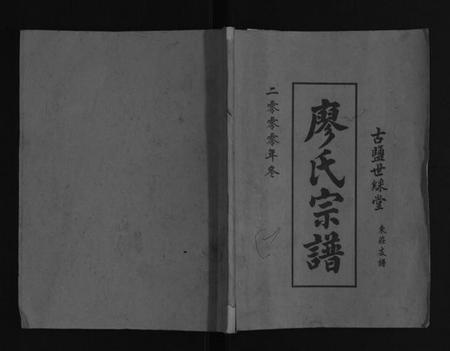 古鹽世綵堂 東莊支譜
廖氏宗譜
二零零零年冬